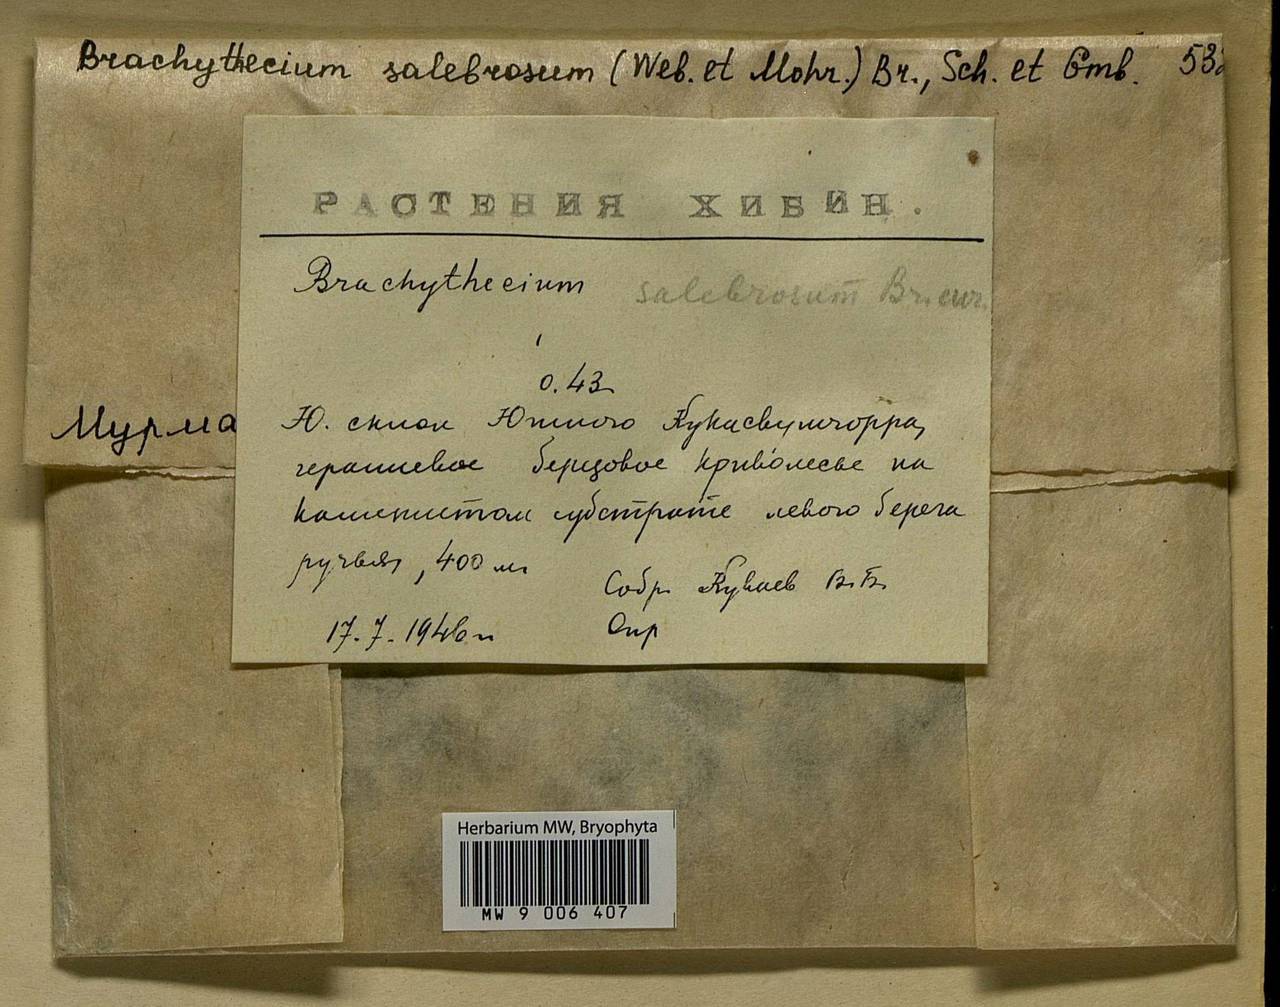 Brachythecium salebrosum (Web. et Mohr.) Br., Sch. et Gmb. 532
РАСТЕНИЯ ХИБИН.
Brachythecium salebrosum Br. eur.
0.43
Ю. склон Южного Кукисвумчорра,
гераниевое березовое криволесье на
каменистом субстрате левого берега
ручья, 400 м.
Собр. Куваев В.Б.
17.7.1946 г.
Опр
Мурма
Herbarium MW, Bryophyta
MW 9 006 407